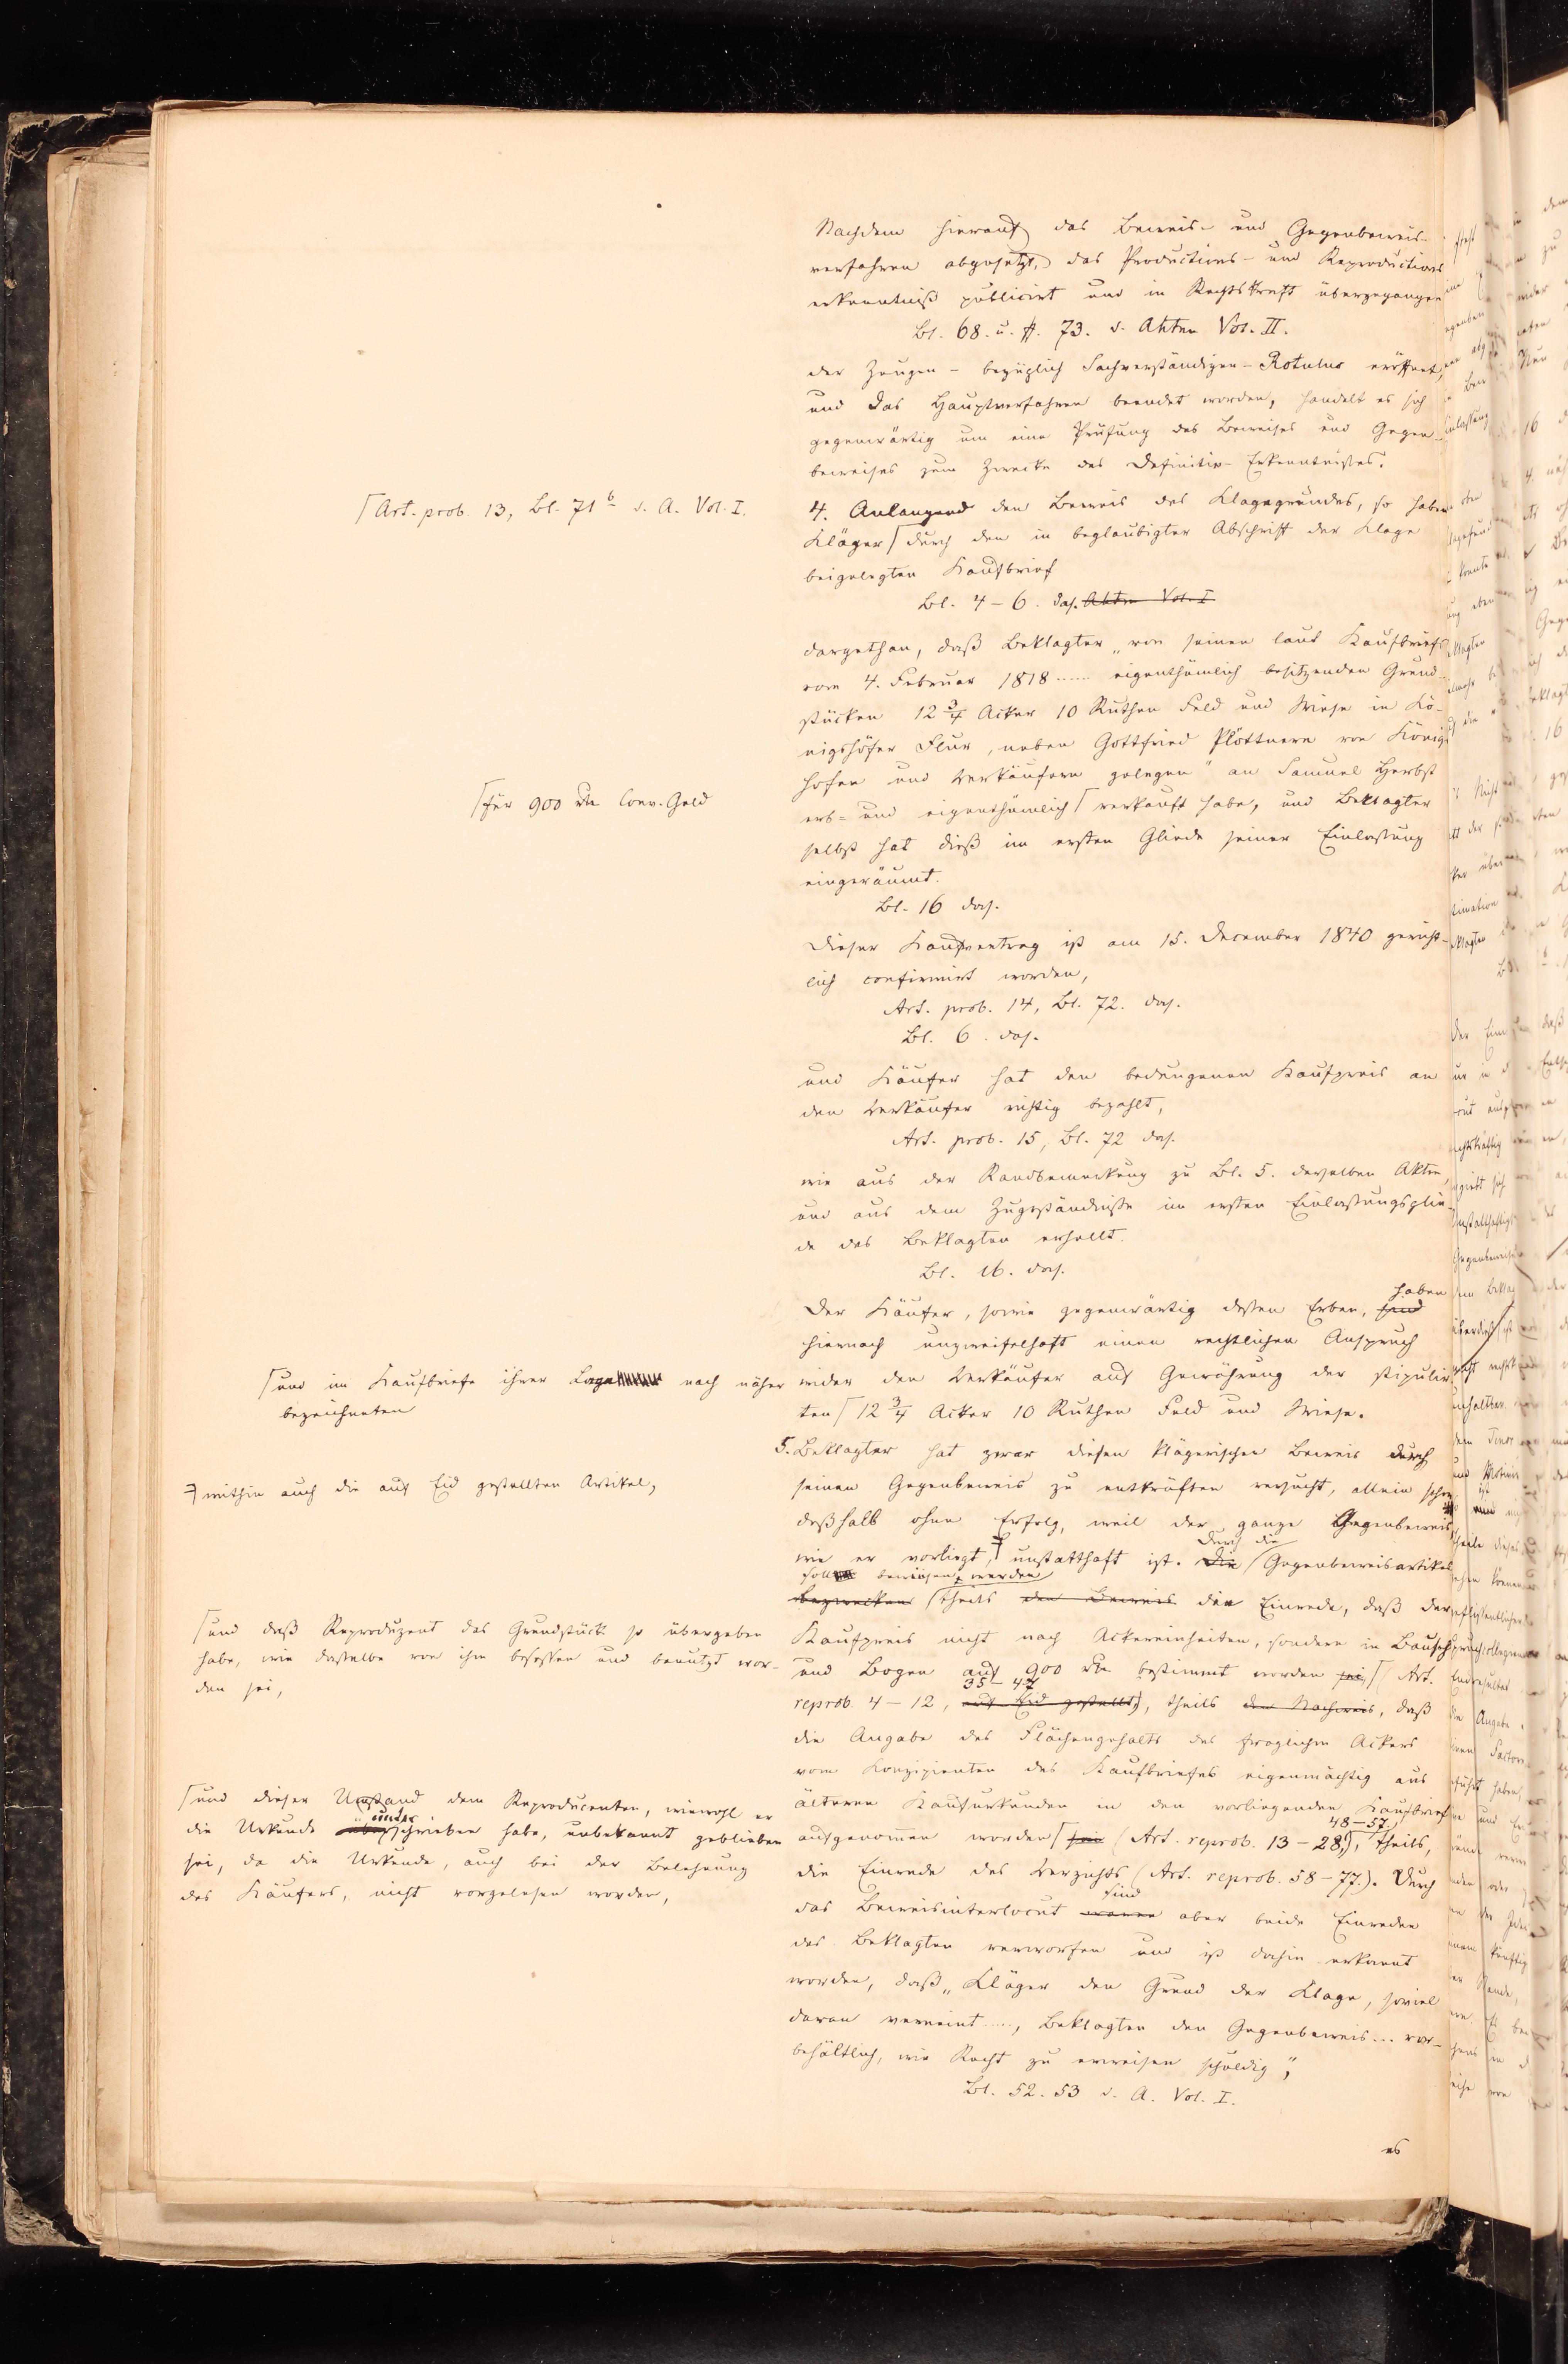 Nachdem hierauf das Beweis- und Gegenbeweis-
verfahren abgesetzt, das Productions- und Reproductions
erkenntniß publicirt und in Rechtskraft übergegangen
Bl. 68. u. ff. 73. d. Akten Vol. II.
der Zeugen- bezüglich Sachverständigen-Rotulus eröffnet,
und das Hauptverfahren beendet worden, handelt es sich
gegenwärtig um eine Prüfung des Beweises und Gegen-
beweises zum Zwecke des Definitiv-Erkenntnißes.
4. Anlangend den Beweis des Klagegrundes, so haben
⌈Art. prob. 13, Bl. 71b d. A. Vol. I.
Kläger⌈ durch den in beglaubigter Abschrift der Klage
beigelegten Kaufbrief
Bl. 4-6. das. Akten Vol. I
dargethan, daß Beklagter „von seinen laut Kaufbriefs
vom 4. Februar 1818 ...... eigenthümlich besitzenden Grund-
stücken 12 3/4 Acker 10 Ruthen Feld und Wiese in Kö-
nigshöfer Flur, neben Gottfried Plöttnern von Königs
hofen und Verkäufern gelegen" an Samuel Herbst
⌈für 900 rth Conv. Geld
erb- und eigenthümlich⌈ verkauft habe, und Beklagter
selbst hat dieß im ersten Gliede seiner Einlassung
eingeräumt.
Bl. 16 das.
Dieser Kaufvertrag ist am 15. December 1840 gericht-
lich confirmirt worden,
Art. prob. 14, Bl. 72. das.
Bl. 6. das.
und Käufer hat den bedungenen Kaufpreis an
den Verkäufer richtig bezahlt,
Art. prob. 15, Bl. 72 das.
wie aus der Randbemerkung zu Bl. 5. derselben Akten
und aus dem Zugeständnisse im ersten Einlassungsglie-
de des Beklagten erhellt.
Bl. 16. das.
haben
Der Käufer, sowie gegenwärtig dessen Erben, sind
hiernach unzweifelhaft einen rechtlichen Anspruch
wider den Verkäufer auf Gewährung der stipulir
⌈und im Kaufbriefe ihrer Lage nach näher
bezeichneten
ten⌈ 12 3/4 Acker 10 Ruthen Feld und Wiese.
5. Beklagter hat zwar diesen klägerischen Beweis durch
seinen Gegenbeweis zu entkräften versucht, allein schon
deßhalb ohne Erfolg, weil der ganze Gegenbeweis,
ⴼ mithin auch die auf Eid gestellten Artikel,
durch die
wie er vorliegt, unstatthaft ist. Die Gegenbeweisartikel
soll bewiesen werden
bezwecken theils den Beweis die Einrede, daß der
Kaufpreis nicht nach Ackereinheiten, sondern in Bausch
und Bogen auf 900 rth bestimmt worden sei,⌈ (Art.
⌈und daß Reproduzent das Grundstück so übergeben
habe, wie dasselbe von ihm besessen und benutzt wor-
den sei,
35-47
reprob. 4-12, auf Eid gestellt), theils den Nachweis, daß
die Angabe des Flächengehalts des fraglichen Ackers
vom Konzipienten des Kaufbriefes eigenmächtig aus
älteren Kaufurkunden in den vorliegenden Kaufbrief
48-57.
aufgenommen worden⌈ sei (Art. reprob. 13-28,), theils,
⌈und dieser Umstand dem Reproducenten, wiewohl er
unter
die Urkunde überschrieben habe, unbekannt geblieben
sei, da die Urkunde, auch bei der Belehnung
des Käufers, nicht vorgelesen worden,
die Einrede des Verzichts (Art. reprob. 58-77.). Durch
sind
das Beweisinterlocut waren aber beide Einreden
des Beklagten verworfen und ist dahin erkannt
worden, daß „Kläger den Grund der Klage, soviel
daran verneint ....., Beklagten den Gegenbeweis ... vor-
behältlich, wie Recht zu erweisen schuldig";
Bl. 52. 53 d. A. Vol. I.
es